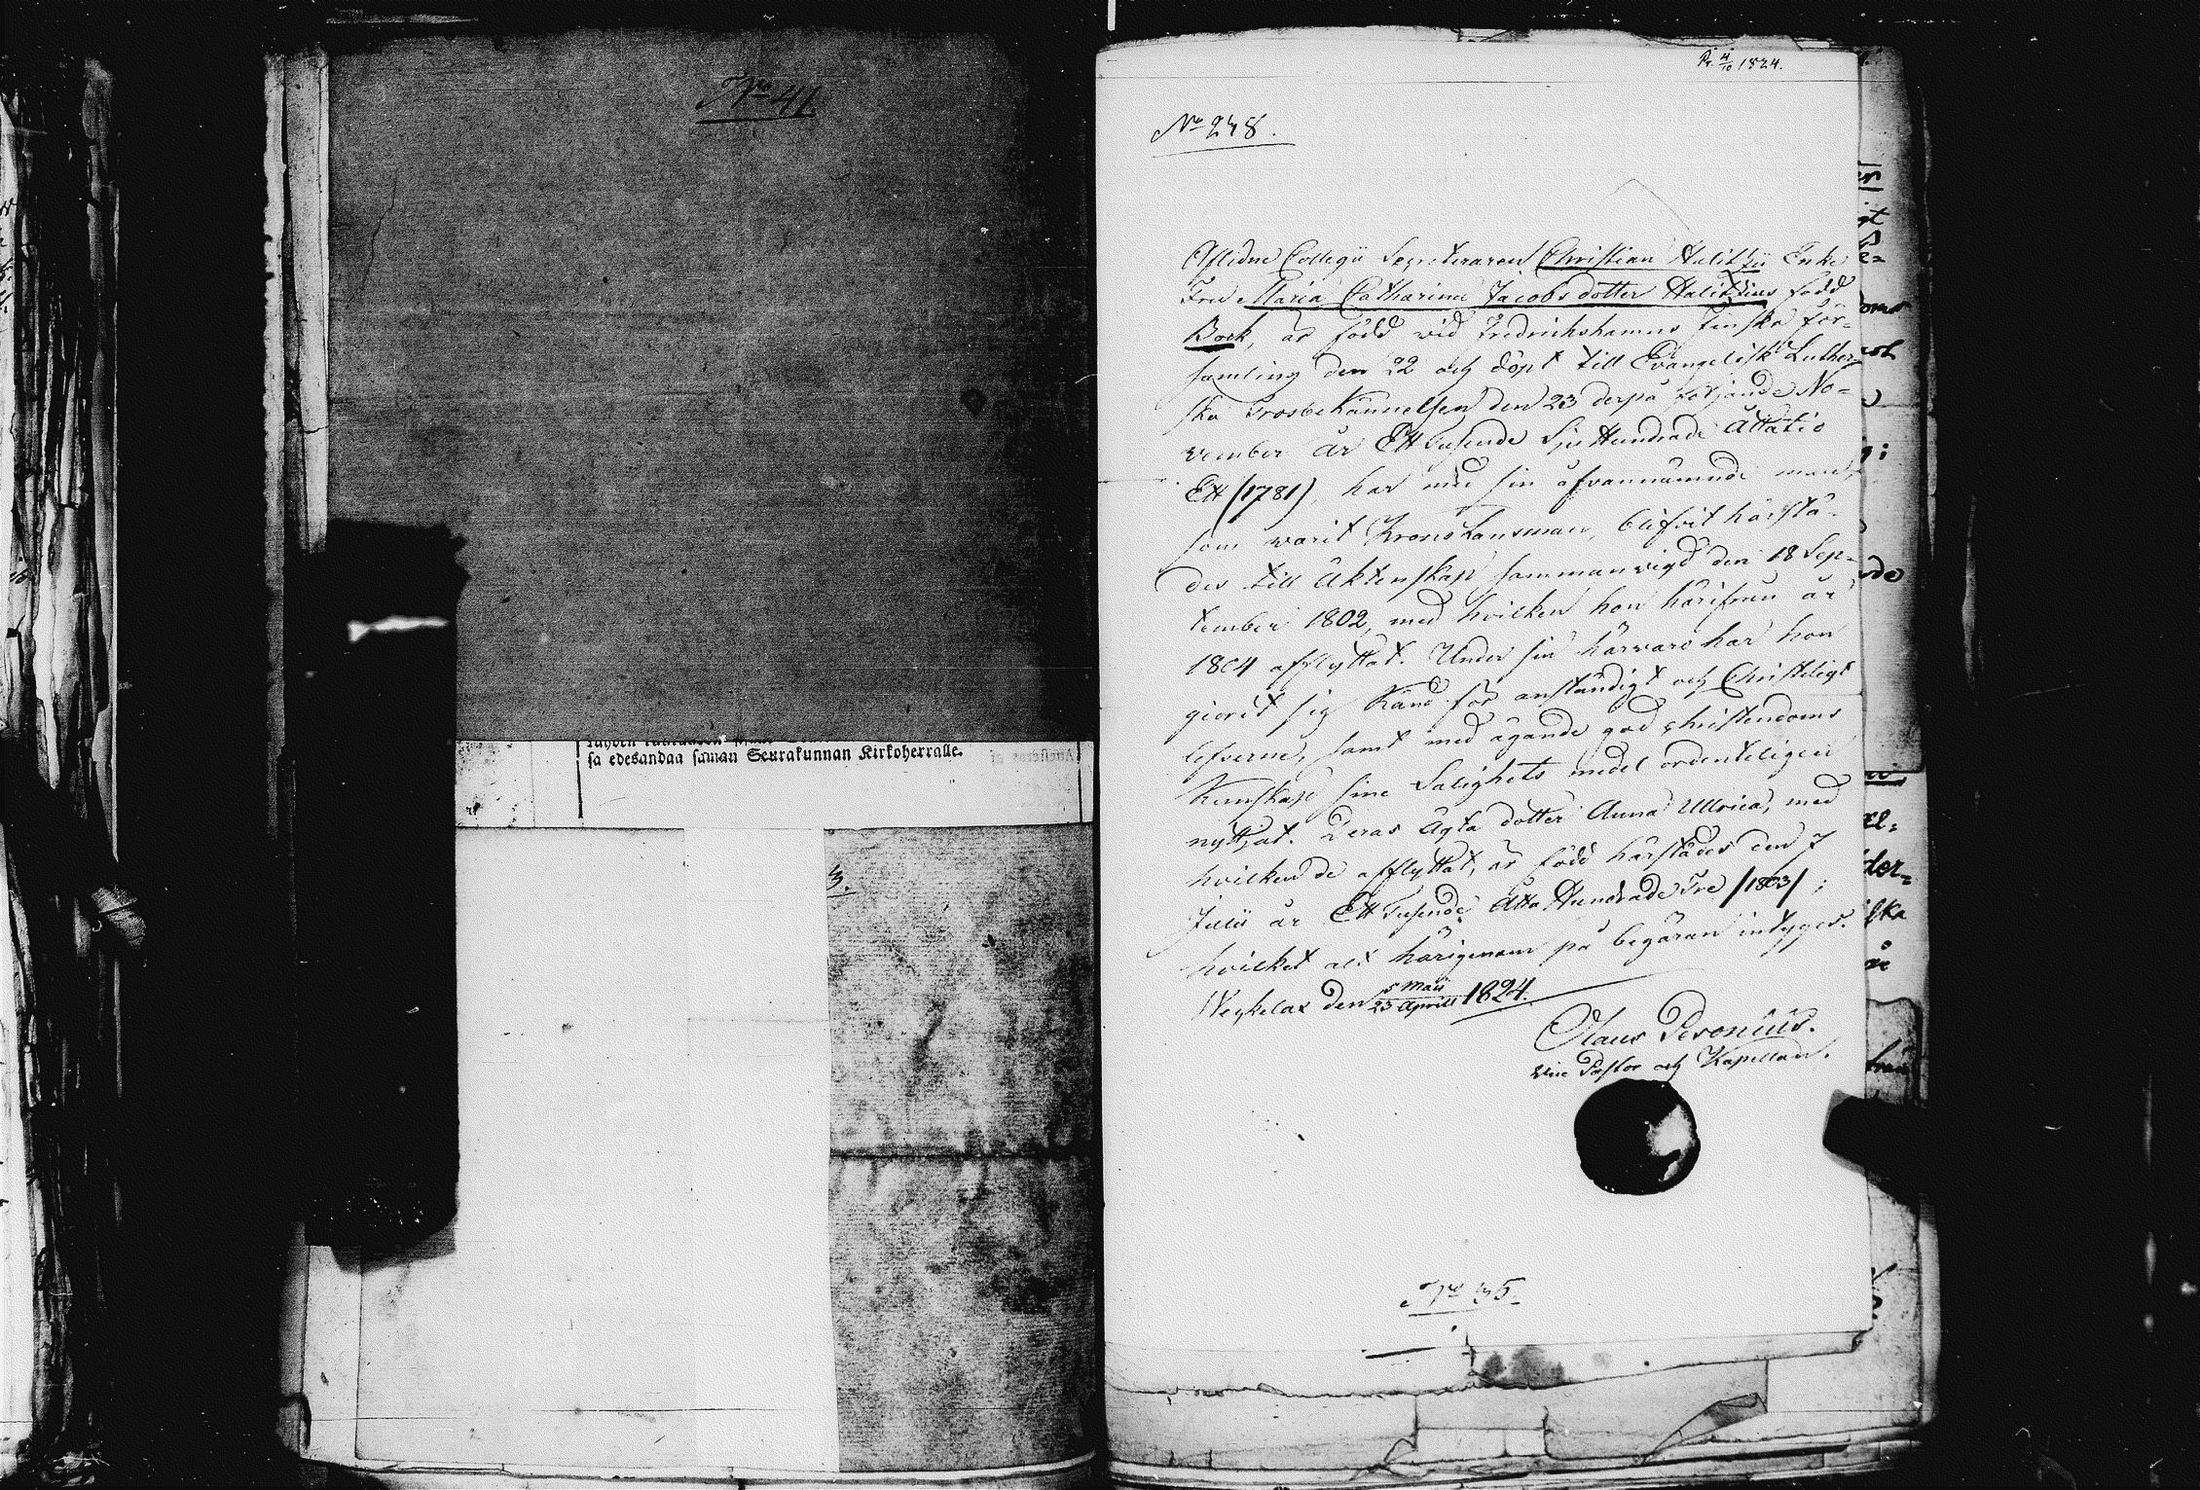 Nro 41.
sa edesandaa saman Seurakunnan Kirkoherralle.
3.
Pr. 4/10 1824.
No 248.
Aflidne Collegii Secreteraren Christian Halitzii Enka
Fru Maria Catharina Jacobsdotter Halitzius född
Bock, är född wid Fredrichshamns Finska för-
samling den 22 och döpt till Evangelisk Luther-
ska Trosbekännelsen den 23 derpå följande No-
vember år Ett Tusende Sju Hundrade Åttatio
Ett (1781), har med sin ofvannämnde man,
som warit Kronolänsman, blifvit härstä-
des till Äktenskap sammanvigd den 18 Sep-
tember 1802, med hvilken hon härifrån år
1804 afflyttat. Under sin härvaro har hon
giordt sig känd för anständigt och Christeligt
lefverne, samt med ägande god christendoms
Kunskap sine Salighets medel ordenteligen
nyttjat. Deras ägta dotter Anna Ullrica, med
hvilken de afflyttat, är född härstädes den 7
Julii år Ett Tusende Åtta Hundrade Tre /1803/;
hvilket alt härigenom på begäran intygas.
Weckelax den 5 Maii
23 Aprill 1824.
Olaus Peronius.
Vice Pastor och Kapellan.
Nro 35.